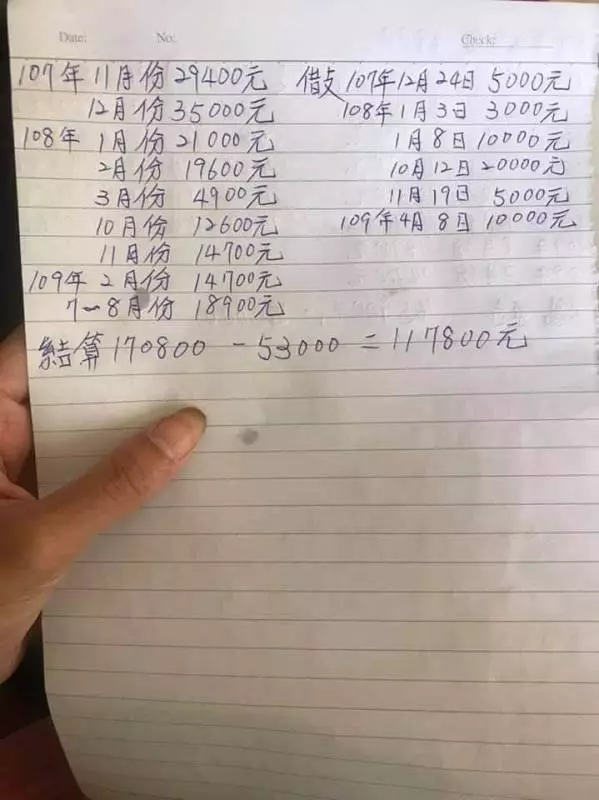 Date: No: Check:
107年 11月份 29400元 借支 107年12月24日 5000元
12月份 35000元 108年1月3日 3000元
108年 1月份 21000元 1月8日 10000元
2月份 19600元 10月12日 20000元
3月份 4900元 11月19日 5000元
10月份 12600元 109年4月8日 10000元
11月份 14700元
109年 2月份 14700元
7-8月份 18900元
結算 170800 - 53000 = 117800元